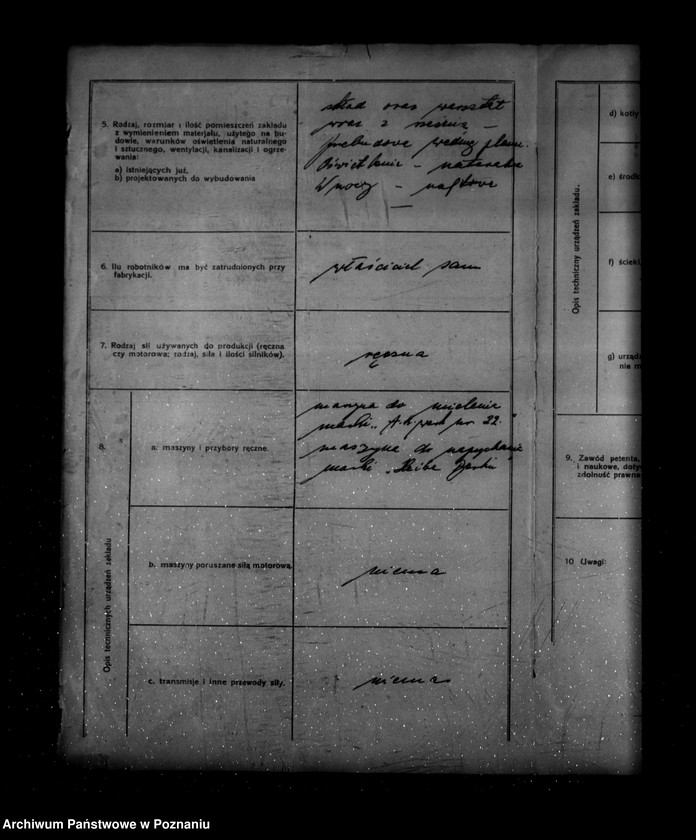 5. Rodzaj, rozmiar i ilość pomieszczeń zakładu
z wymienieniem materjału, użytego na bu-
dowie, warunków oświetlenia naturalnego
i sztucznego, wentylacji, kanalizacji i ogrze-
wania:
a) istniejących już,
b) projektowanych do wybudowania
skład oraz warsztat
wraz z
według planu.
Oświetlenie – naturalne
W nocy – naftowe
6. Ilu robotników ma być zatrudnionych przy
fabrykacji.
właściciel sam
7. Rodzaj sił używanych do produkcji (ręczna
czy motorowa; rodzaj, siła i ilości silników).
ręczna
8.
Opis technicznych urządzeń zakładu
a. maszyny i przybory ręczne.
maszyna do mielenia
marki nr 22."
maszyna do napychania
marki
b. maszyny poruszane siłą motorową.
niema
c. transmisje i inne przewody siły.
niema
Opis techniczny urządzeń zakładu.
d) kotły
e) środk
f) ścieki,
g) urządz
nie m
9. Zawód petenta,
i naukowe, doty
zdolność prawna
10 Uwagi:
Archiwum Państwowe w Poznaniu